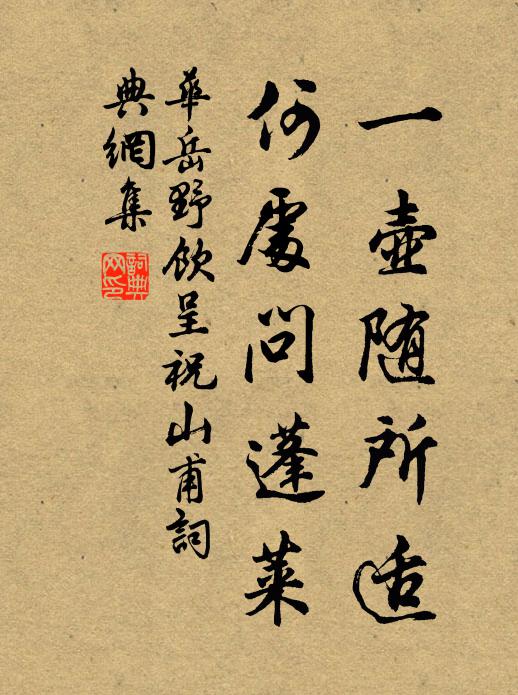 一壺随所适
何處問蓬萊
華岳野飲呈祝山甫詞
典網集
詞典網印